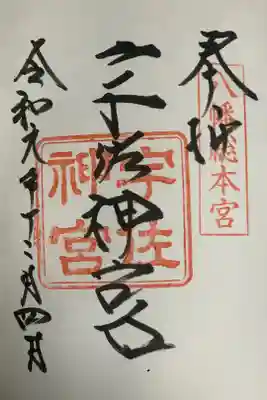 八幡総本宮
奉拝
宇佐神宮
宇佐
神宮
令和元年十二月四日